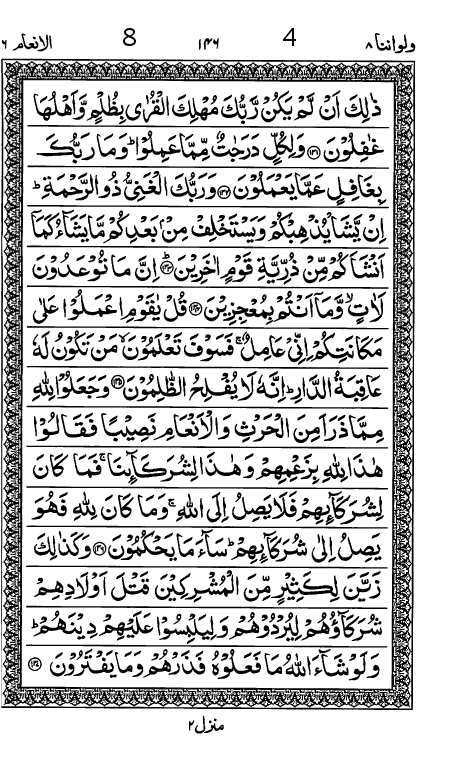 ولواننا ۸ 4 ۱۴۶ 8 الانعام ۶
ذٰلِكَ اَنْ لَّمْ يَكُنْ رَّبُّكَ مُهْلِكَ الْقُرٰى بِظُلْمٍ وَّاَهْلُهَا
غٰفِلُوْنَ ﴿۱۳۱﴾ وَلِكُلٍّ دَرَجٰتٌ مِّمَّا عَمِلُوْا ؕ وَمَا رَبُّكَ
بِغَافِلٍ عَمَّا يَعْمَلُوْنَ ﴿۱۳۲﴾ وَرَبُّكَ الْغَنِىُّ ذُو الرَّحْمَةِ ؕ
اِنْ يَّشَاْ يُذْهِبْكُمْ وَيَسْتَخْلِفْ مِنْۢ بَعْدِكُمْ مَّا يَشَآءُ كَمَاۤ
اَنْشَاَكُمْ مِّنْ ذُرِّيَّةِ قَوْمٍ اٰخَرِيْنَ ﴿۱۳۳﴾ اِنَّ مَا تُوْعَدُوْنَ
لَاٰتٍ ۙ وَّمَاۤ اَنْتُمْ بِمُعْجِزِيْنَ ﴿۱۳۴﴾ قُلْ يٰقَوْمِ اعْمَلُوْا عَلٰى
مَكَانَتِكُمْ اِنِّىْ عَامِلٌ ۚ فَسَوْفَ تَعْلَمُوْنَ ۙ مَنْ تَكُوْنُ لَهٗ
عَاقِبَةُ الدَّارِ ؕ اِنَّهٗ لَا يُفْلِحُ الظّٰلِمُوْنَ ﴿۱۳۵﴾ وَجَعَلُوْا لِلّٰهِ
مِمَّا ذَرَاَ مِنَ الْحَرْثِ وَالْاَنْعَامِ نَصِيْبًا فَقَالُوْا
هٰذَا لِلّٰهِ بِزَعْمِهِمْ وَهٰذَا لِشُرَكَآئِنَا ۚ فَمَا كَانَ
لِشُرَكَآئِهِمْ فَلَا يَصِلُ اِلَى اللّٰهِ ۚ وَمَا كَانَ لِلّٰهِ فَهُوَ
يَصِلُ اِلٰى شُرَكَآئِهِمْ ؕ سَآءَ مَا يَحْكُمُوْنَ ﴿۱۳۶﴾ وَكَذٰلِكَ
زَيَّنَ لِكَثِيْرٍ مِّنَ الْمُشْرِكِيْنَ قَتْلَ اَوْلَادِهِمْ
شُرَكَآؤُهُمْ لِيُرْدُوْهُمْ وَلِيَلْبِسُوْا عَلَيْهِمْ دِيْنَهُمْ ؕ
وَلَوْ شَآءَ اللّٰهُ مَا فَعَلُوْهُ فَذَرْهُمْ وَمَا يَفْتَرُوْنَ ﴿۱۳۷﴾
منزل ۲